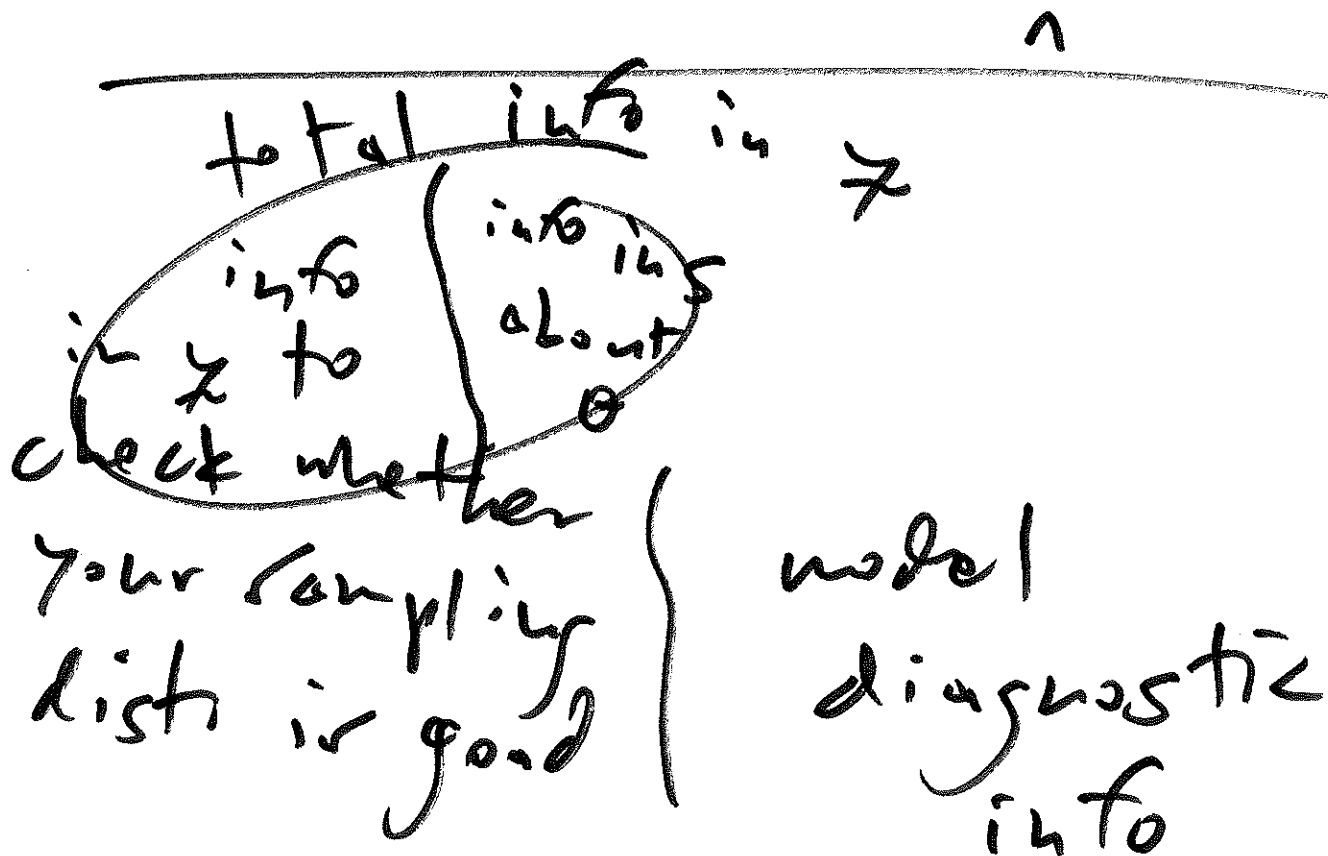 ^
total info in y
info
in y to
check whether
your sampling
distr is good
info in s
about
θ
model
diagnostic
info